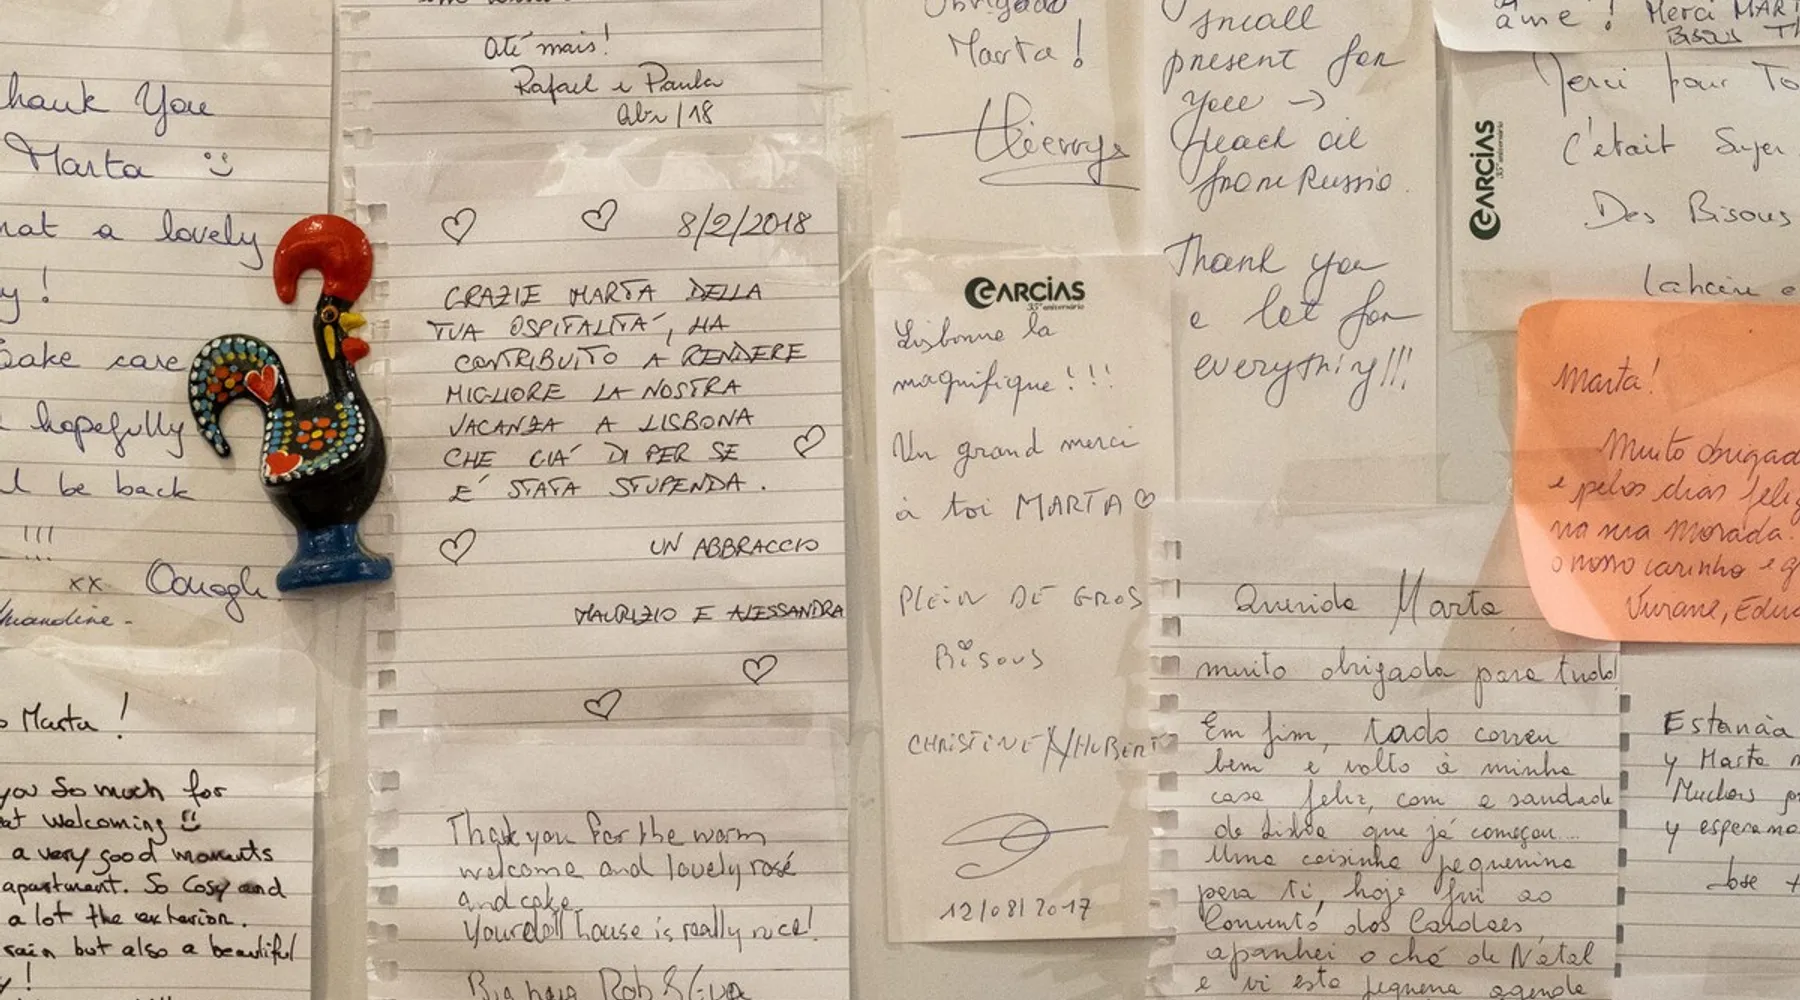 hank You
Marta
hat a lovely
y!
Take care
hopefully
l be back
!!!
xx Oonagh
Amandine -
Marta!
you so much for
at welcoming
a very good moments
apartment. So cosy and
a lot the exterior.
rain but also a beautiful
y!
Até mais!
Rafael e Paula
Abr/18
8/2/2018
GRAZIE MARTA DELLA
TUA OSPITALITA', HA
CONTRIBUITO A RENDERE
MIGLIORE LA NOSTRA
VACANZA A LISBONA
CHE GIA' DI PER SE
E' STATA STUPENDA.
UN ABBRACCIO
MAURIZIO E ALESSANDRA
Thank you for the warm
welcome and lovely rosé
and cake.
Your doll house is really nice!
Big hugs Rob & Eva
Obrigado
Marta!
Thierry
GARCIAS
35º aniversário
Lisbonne la
magnifique!!!
Un grand merci
à toi MARTA
PLEIN DE GROS
BISOUS
CHRISTINE HUBERT
12/08/2017
small
present for
you →
peach oil
from Russia.
Thank you
a lot for
everything!!!
Querida Marta
muito obrigada para tudo!
Em fim, tudo correu
bem e volto à minha
casa feliz, com a saudade
de Lisboa que já começou...
Uma coisinha pequenina
para ti, hoje fui ao
Convento dos Cardaes,
apanhei o chá de Natal
e vi esta pequena agenda
âme! Merci MAR
Bisous Th
Merci pour To
C'etait Super
Des Bisous
GARCIAS
35º aniversário
Marta!
Muito obrigad
e pelos dias feliz
na sua morada.
o nosso carinho e g
Viviane, Edua
Estancia
y Marta m
Muchas
y esperamo
Jose +